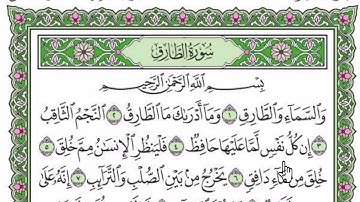 سُورَةُ الطَّارِقِ
بِسْمِ اللَّهِ الرَّحْمَٰنِ الرَّحِيمِ
وَالسَّمَاءِ وَالطَّارِقِ ١ وَمَا أَدْرَاكَ مَا الطَّارِقُ ٢ النَّجْمُ الثَّاقِبُ
٣ إِن كُلُّ نَفْسٍ لَّمَّا عَلَيْهَا حَافِظٌ ٤ فَلْيَنظُرِ الْإِنسَانُ مِمَّ خُلِقَ ٥
خُلِقَ مِن مَّاءٍ دَافِقٍ ٦ يَخْرُجُ مِن بَيْنِ الصُّلْبِ وَالتَّرَائِبِ ٧ إِنَّهُ عَلَىٰ